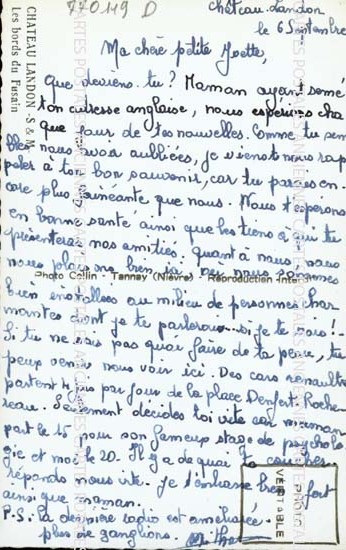 770119 D
Château-Landon
le 6 Septembre
Ma chère petite Yvette,
Que deviens-tu ? Maman ayant semé
ton adresse anglaise, nous espérions cha
que jour de tes nouvelles. Comme tu sem
bles nous avoir oubliées, je viens nous rap
peler à ton bon souvenir, car tu parais en-
core plus fainéante que nous. Nous t'espérons
en bonne santé ainsi que les tiens à qui tu
présenteras nos amitiés. Quant à nous, nous
nous plaisons bien ici. Nous sommes
bien installées au milieu de personnes char
mantes dont je te parlerai si je te vois !
Si tu ne sais pas quoi faire de ta peau, tu
peux venir nous voir ici. Des cars renault
partent par jour de la place Denfert Roche
reau. Seulement décides toi vite car maman
part le 15 pour son fameux stage de psycholo
gie et moi le 20. Il y a de quoi coucher.
réponds nous vite. Je t'embrasse bien fort
ainsi que maman.
P-S : la dernière radio est améliorée :
plus de ganglions.
CHATEAU LANDON - S & M
Les bords du Fusain
Photo Collin - Tannay (Nièvre) - Reproduction Inter
VERITABLE
PHOTO